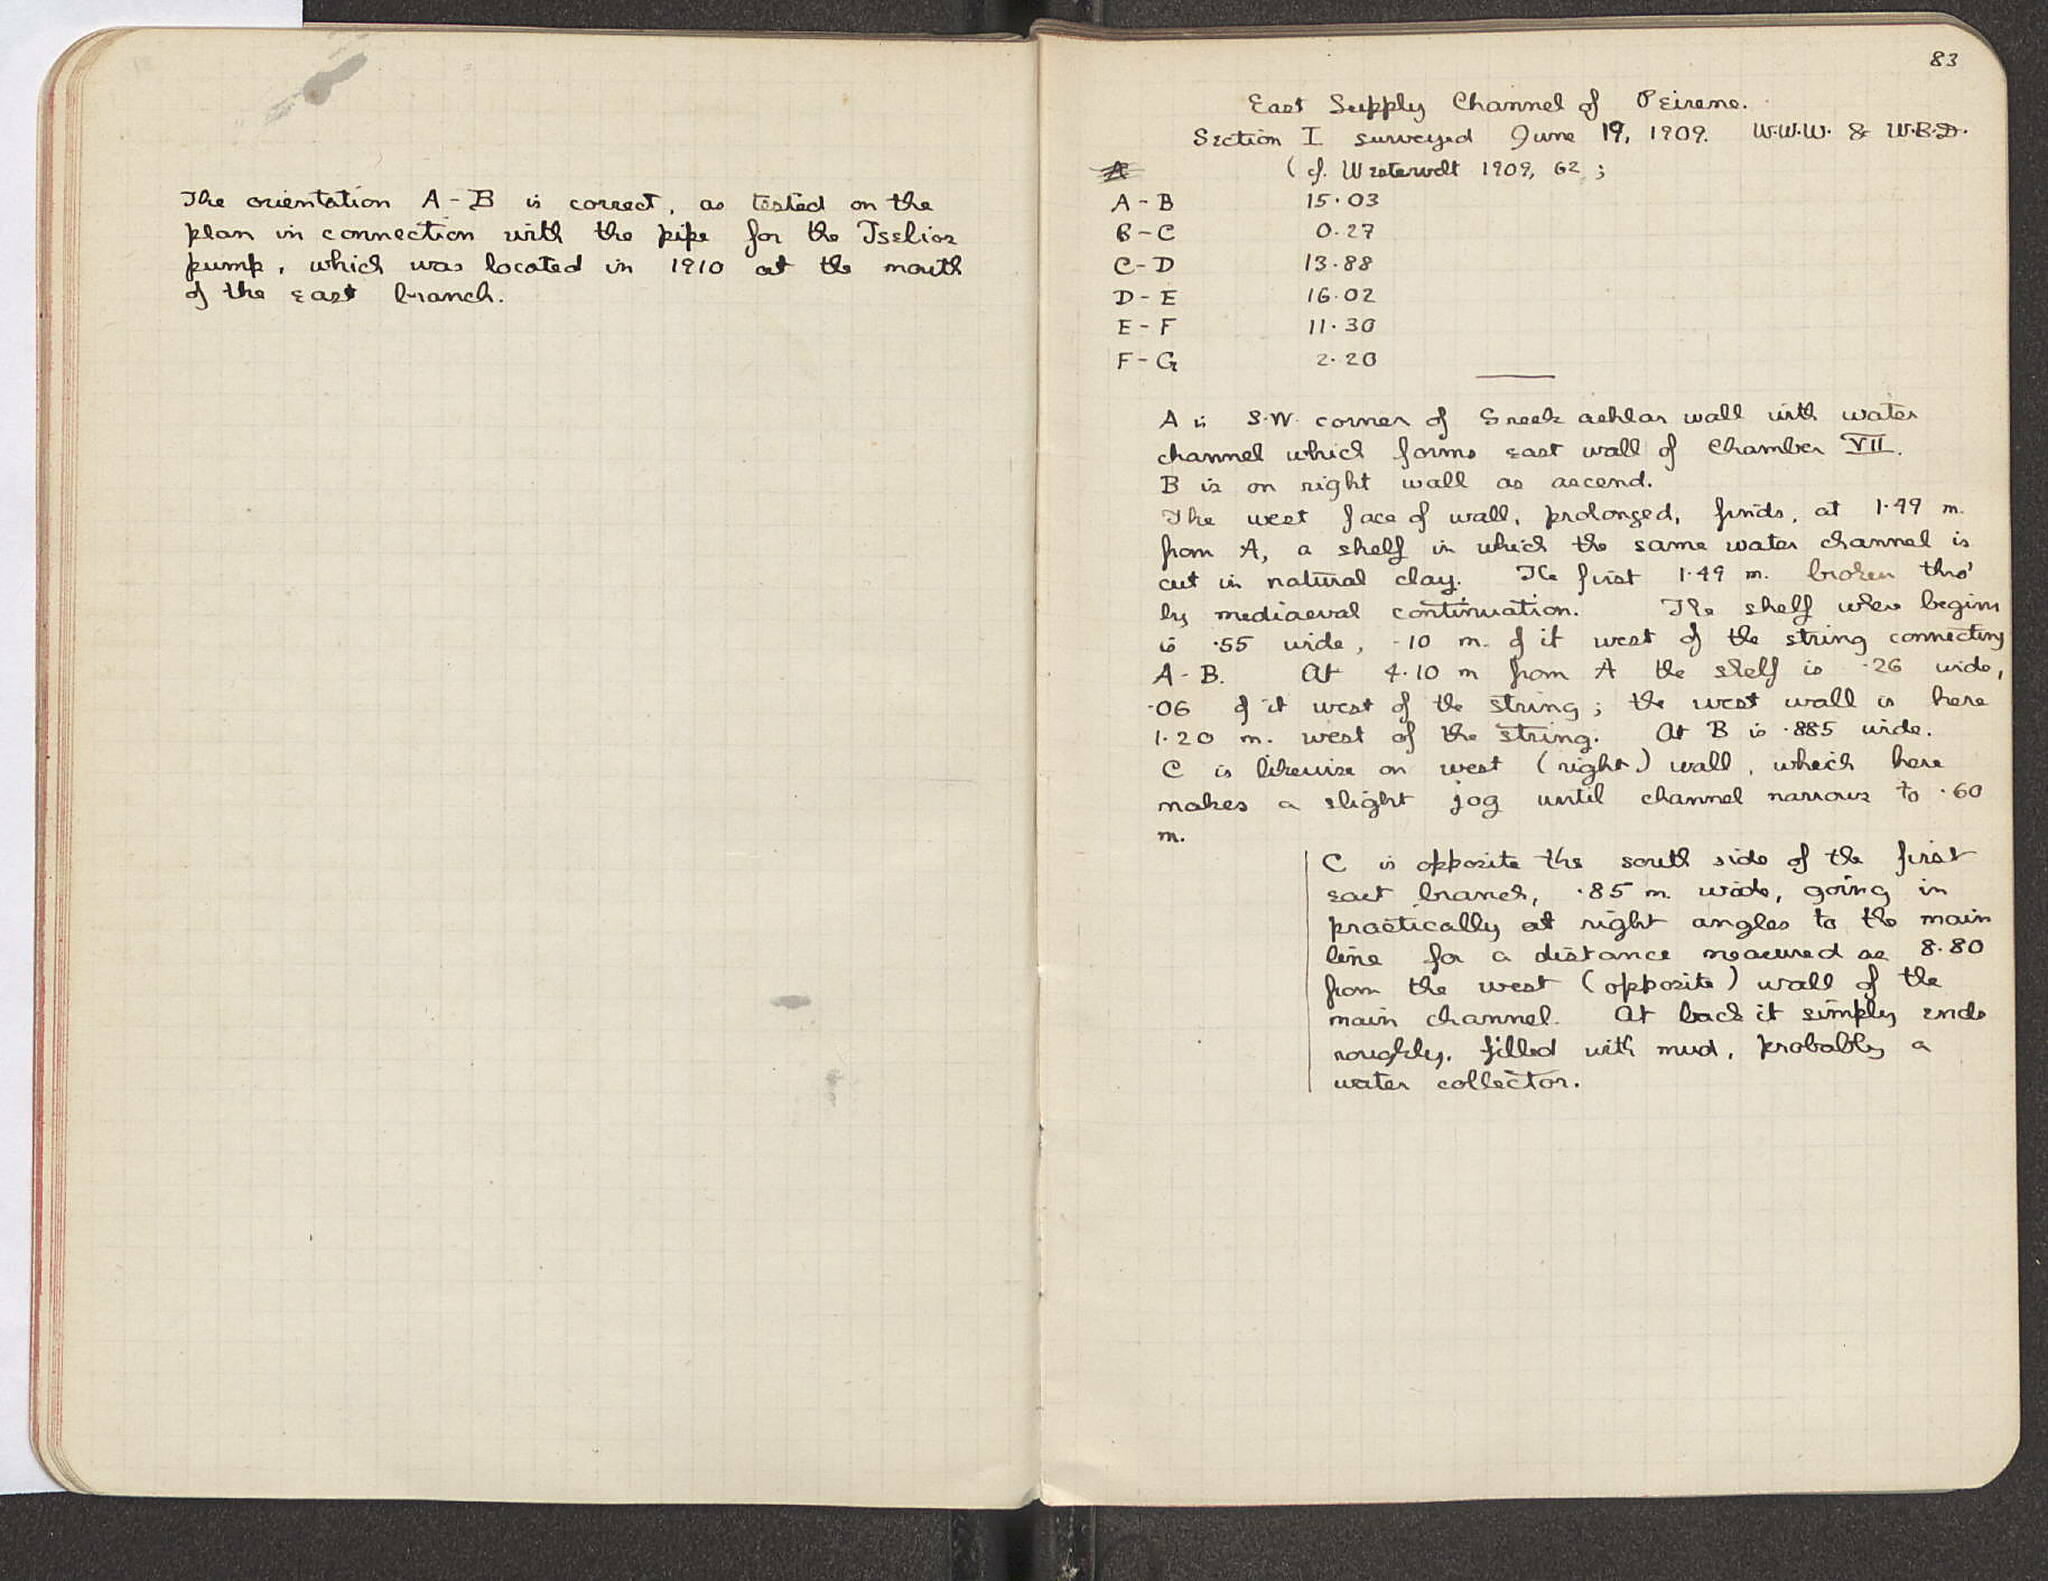 The orientation A-B is correct, as tested on the
plan in connection with the pipe for the Tselios
pump, which was located in 1910 at the mouth
of the east branch.
83
East Supply Channel of Peirene.
Section I surveyed June 19, 1909. W.W.W. & W.B.D.
(cf. Westervelt 1909, 62 ;
A - B 15.03
B - C 0.27
C - D 13.88
D - E 16.02
E - F 11.30
F - G 2.20
A is S.W. corner of Greek ashlar wall with water
channel which forms east wall of Chamber VII.
B is on right wall as ascend.
The west face of wall, prolonged, finds, at 1.49 m.
from A, a shelf in which the same water channel is
cut in natural clay. The first 1.49 m. broken thro'
by mediaeval continuation. The shelf where begins
is .55 wide, .10 m. of it west of the string connecting
A-B. At 4.10 m from A the shelf is .26 wide,
.06 of it west of the string; the west wall is here
1.20 m. west of the string. At B is .885 wide.
C is likewise on west (right) wall, which here
makes a slight jog until channel narrows to .60
m.
C is opposite the south side of the first
east branch, .85 m. wide, going in
practically at right angles to the main
line for a distance measured as 8.80
from the west (opposite) wall of the
main channel. At back it simply ends
roughly, filled with mud, probably a
water collector.